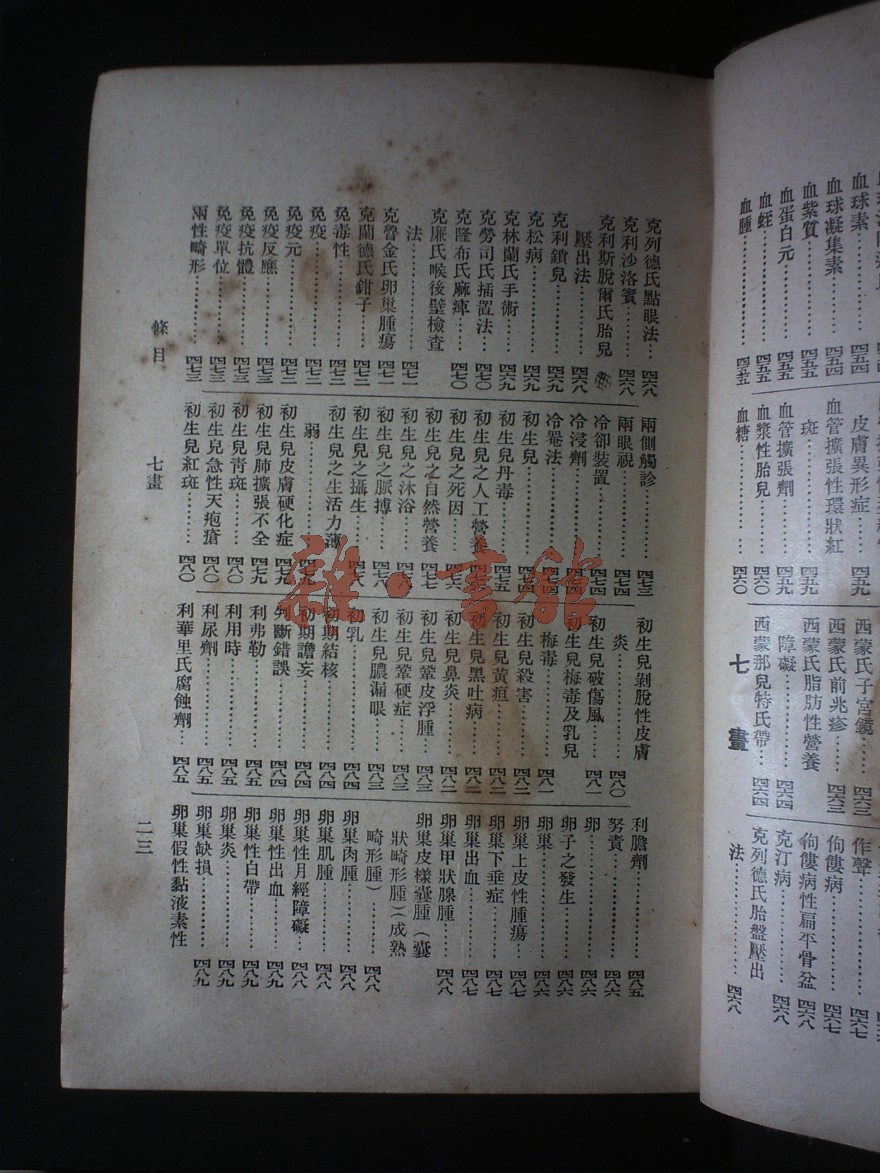 血球素
血球凝集素
四五四
血紫質
四五四
血蛋白元
四五五
血蛭
四五五
血腫
四五五
皮膚異形症
四五九
血管擴張性環狀紅
斑
四五九
血管擴張劑
四五九
血漿性胎兒
四六〇
血糖
四六〇
西蒙氏子宮鏡
四六三
西蒙氏前兆疹
四六三
西蒙氏脂肪性營養
障礙
四六四
西蒙那兒特氏帶
四六四
七畫
作聲
四六七
佝僂病
四六七
佝僂病性扁平骨盆
四六八
克汀病
四六八
克列德氏胎盤壓出
法
四六八
克列德氏點眼法
四六八
克利沙洛賓
四六八
克利斯脫爾氏胎兒
壓出法
四六八
克利鎖兒
四六九
克松病
四六九
克林蘭氏手術
四六九
克勞司氏插置法
四七〇
克隆布氏麻痺
四七〇
克廉氏喉後壁檢查
法
四七一
克魯金氏卵巢腫瘍
四七一
克蘭德氏鉗子
四七二
免毒性
四七二
免疫
四七二
免疫元
四七二
免疫反應
四七三
免疫抗體
四七三
免疫單位
四七三
兩性畸形
四七三
兩側觸診
四七三
兩眼視
四七四
冷卻裝置
四七四
冷浸劑
四七四
冷罨法
四七四
初生兒
四七四
初生兒丹毒
四七五
初生兒之人工營養
初生兒之死因
四七六
初生兒之自然營養
四七七
初生兒之沐浴
四七八
初生兒之脈搏
四七八
初生兒之攝生
四七八
初生兒之生活力薄
弱
四七九
初生兒皮膚硬化症
四七九
初生兒肺擴張不全
四七九
初生兒青斑
四八〇
初生兒急性天疱瘡
四八〇
初生兒紅斑
四八〇
初生兒剝脫性皮膚
炎
四八〇
初生兒破傷風
四八一
初生兒梅毒及乳兒
梅毒
四八一
初生兒殺害
四八二
初生兒黃疸
四八二
初生兒黑吐病
四八二
初生兒鼻炎
四八二
初生兒鞏皮浮腫
四八三
初生兒鞏硬症
四八三
初生兒膿漏眼
四八三
初乳
四八四
初期結核
四八四
初期譫妄
四八四
判斷錯誤
四八四
利弗勒
四八五
利用時
四八五
利尿劑
四八五
利華里氏腐蝕劑
四八五
利膽劑
四八五
努責
四八六
卵
四八六
卵子之發生
四八六
卵巢
四八六
卵巢上皮性腫瘍
四八七
卵巢下垂症
四八七
卵巢出血
四八七
卵巢甲狀腺腫
四八八
卵巢皮樣囊腫（囊
狀畸形腫）（成熟
畸形腫）
四八八
卵巢肉腫
四八八
卵巢肌腫
四八八
卵巢性月經障礙
四八八
卵巢性出血
四八九
卵巢性白帶
四八九
卵巢炎
四八九
卵巢缺損
四八九
卵巢假性黏液素性
條目
七畫
二三
雜·書館